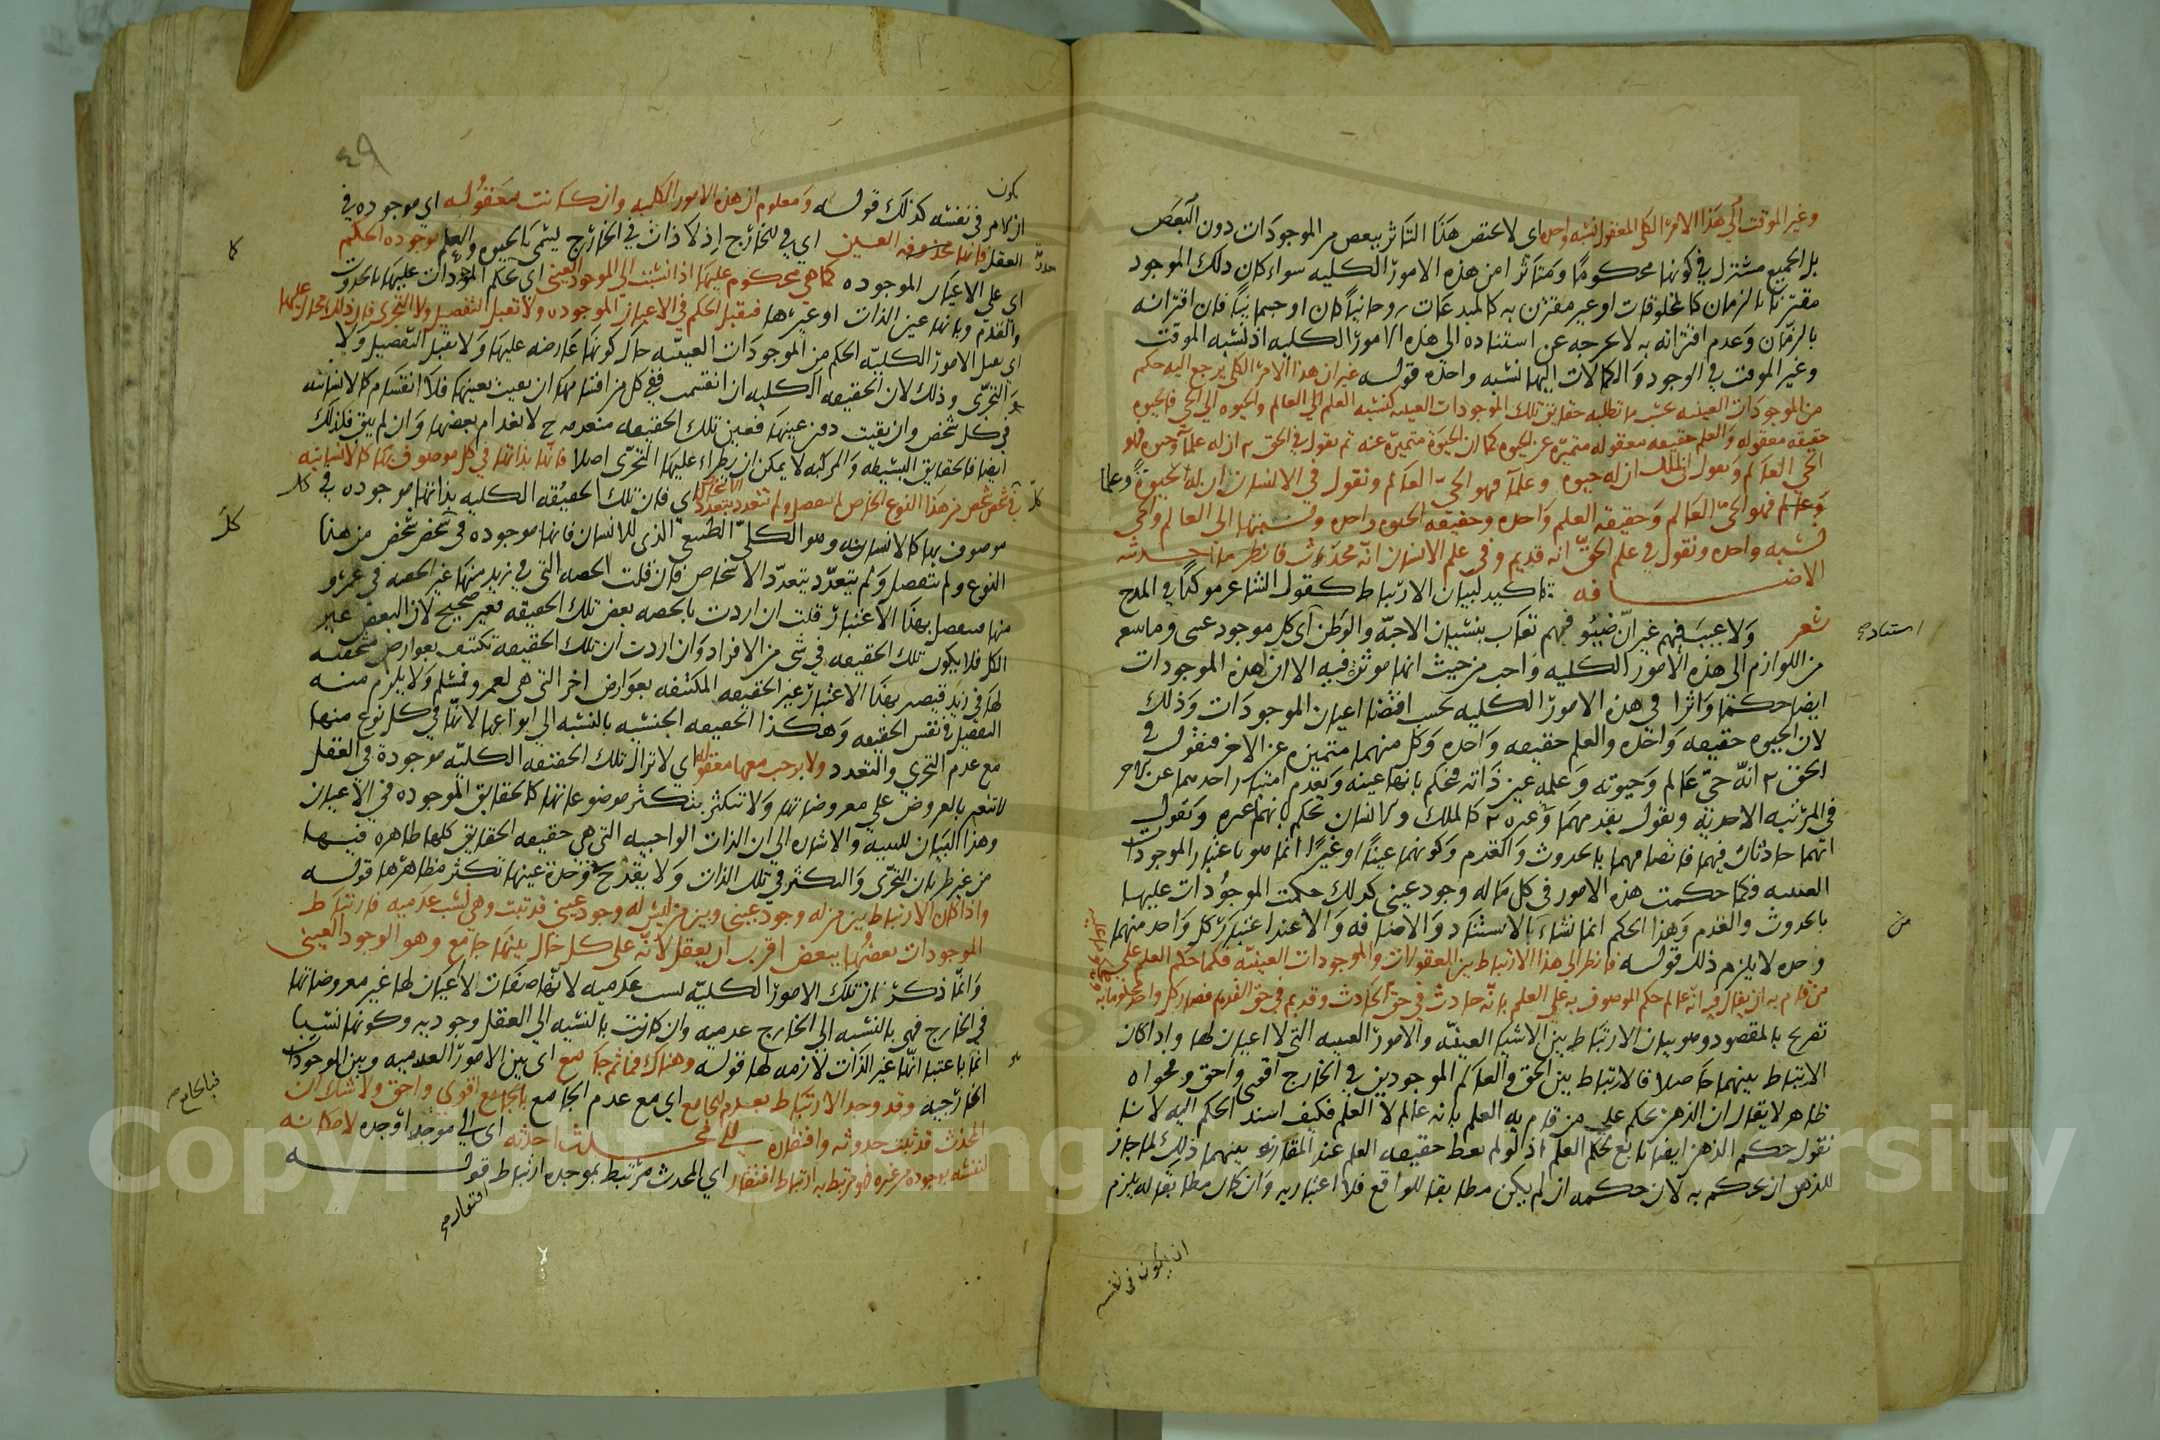 وغير الموقت الى هذا الامر الكلى المعقول نسبه واحده اى لا يختص هذا التاثر ببعض من الموجودات دون البعض
بل الجميع مشترك في كونها محكوما ومتاثرا من هذه الامور الكليه سواء كان ذلك الموجود
مقترنا بالزمان كالمخلوقات او غير مقترن به كالمبدعات روحانيا كان او جسمانيا فان اقترانه
بالزمان وعدم اقترانه به لا يخرجه عن استناده الى هذه الامور الكليه اذ نسبه الموقت
وغير الموقت في الوجود والكمالات اليها نسبه واحده قوله غير ان هذا الامر الكلى يرجع اليه حكم
من الموجودات العينيه بحسب ما تطلبه حقايق تلك الموجودات العينيه كنسبه العلم الى العالم والحيوه الى الحى فالحيوه
حقيقه معقوله والعلم حقيقه معقوله متميزه عن الحيوه كما ان الحيوة متميزه عنه ثم نقول في الحق ان له علما وحيوه فهو
الحى العالم ونقول في الملك ان له حيوه وعلما فهو الحى العالم ونقول في الانسان ان له حيوة وعلما
فهو الحى العالم وحقيقه العلم واحده وحقيقه الحيوه واحده ونسبتها الى العالم والحى
نسبه واحده ونقول في علم الحق انه قديم وفى علم الانسان انه محدث فانظر ما احدثته
الاضافه تاكيد لبيان الارتباط كقول الشاعر موكدا في المدح
شعر ولا عيب فيهم غير ان ضيوفهم تعاب بنسيان الاحبة والوطن اى كل موجود عينى وما يتبعه
من اللوازم الى هذه الامور الكليه واجب من حيث انها موثرة فيه الا ان لهذه الموجودات
ايضا حكما واثرا في هذه الامور الكليه بحسب اقتضا اعيان الموجودات وذلك
لان الحيوه حقيقه واحده والعلم حقيقه واحده وكل منهما متميزه عن الاخر فنقول في
الحق انه حى عالم وحيوته وعلمه عين ذاته فنحكم بانها عينه وبعدم امتياز احدهما عن الاخر
في المرتبه الاحدية ونقول بقدمهما وغيره كالملك والانسان نحكم بانهما غيره ونقول
انهما حادثان فيهما فاتصافهما بالحدوث والقدم وكونهما عينا او غيرا انما هو باعتبار الموجودات
العينيه فكما حكمت هذه الامور في كل ماله وجود عينى كذلك حكمت الموجودات عليها
بالحدوث والقدم وهذا الحكم انما نشاء بالاستناد والاضافه والا عند اعتبار كل واحد منهما
وحده لا يلزم ذلك قوله فانظر الى هذا الارتباط بين المعقولات والموجودات العينيه فكما حكم العلم على
من قام به ان يقال فيه انه عالم حكم الموصوف به على العلم بانه حادث في حق الحادث وقديم في حق القديم فصار كل واحد محكوما به
تصريح بالمقصود وهو بيان الارتباط بين الاشياء العينيه والامور الغيبيه التى لا اعيان لها واذا كان
الارتباط بينهما حاصلا فالارتباط بين الحق والعالم الموجودين في الخارج اقوى واحق وفحواه
ظاهر لا يقال ان الذهن يحكم على من قام به العلم بانه عالم لا العلم فكيف اسند الحكم اليه لانا
نقول حكم الذهن ايضا تابع لحكم العلم اذ لو لم يعط حقيقه العلم عند المقارنه بينهما ذلك لما جاز
للذهن ان يحكم به لان حكمه ان لم يكن مطابقا للواقع فلا اعتبار به وان كان مطابقا له يلزم
ان يكون في نفسه
يكون
ان الامر في نفسه كذلك قوله ومعلوم ان هذه الامور الكليه وان كانت معقوله اى موجوده في
العقل فانها معدومه العين اى في الخارج اذ لا ذات في الخارج يسمى بالحيوه والعلم موجوده الحكم
اى على الاعيان الموجوده كما هى محكوم عليها اذا نسبت الى الموجود العينى اى تحكم الموجودات عليها بالحدوث
والقدم وبانها عين الذات او غيرها فتقبل الحكم في الاعيان الموجوده ولا تقبل التفصيل ولا التجزى فان ذلك محال عليها
اى تقبل الامور الكليه الحكم من الموجودات العينيه حال كونها عارضه عليها ولا تقبل التفصيل ولا
التجزى وذلك لان الحقيقه الكليه ان انقسمت ففى كل من اقسامها ان بقيت بعينها فلا انقسام كالانسانيه
في كل شخص وان بقيت دون عينها فعين تلك الحقيقه منعدمه ح لانعدام بعضها وان لم يبق فلذلك
ايضا فالحقايق البسيطه والمركبه لا يمكن ان يطراء عليها التجزى اصلا فانها بذاتها في كل موصوف بها كالانسانيه
في كل شخص شخص من هذا النوع الخاص لم تتفصل ولم تتعدد بتعدد الاشخاص اى فان تلك الحقيقه الكليه بذاتها موجوده في كل
موصوف بها كالانسانيه وهو الكلى الطبيعى الذى للانسان فانها موجوده في شخص شخص من هذا
النوع ولم تتفصل ولم يتعدد بتعدد الاشخاص فان قلت الحصه التى في زيد منها غير الحصه في عمرو
منها متفصل بهذا الاعتبار قلت ان اردت بالحصه بعض تلك الحقيقه فغير صحيح لان البعض غير
الكل فلا يكون تلك الحقيقه في شى من الافراد وان اردت ان تلك الحقيقه تكتنف بعوارض مشخصه
لها في زيد فيصير بهذا الاعتبار غير الحقيقه المكتنفه بعوارض اخر التى هى لعمرو فمسلم ولا يلزم منه
التفصيل في نفس الحقيقه وهكذا الحقيقه الجنسيه بالنسبه الى انواعها لانها في كل نوع منها
مع عدم التجزى والتعدد ولا برحت معقوله اى لا تزال تلك الحقيقه الكليه موجودة في العقل
لا تتغير بالعروض على معروضاتها ولا تتكثر بتكثر موضوعاتها كالحقايق الموجوده في الاعيان
وهذا البيان للتنبيه والاشاره الى ان الذات الواجبيه التى هى حقيقه الحقايق كلها ظاهره فيها
من غير طريان التجزى والتكثر في تلك الذات ولا يقدح وحدة عينها تكثر مظاهرها قوله
واذا كان الارتباط بين من له وجود عينى وبين من ليس له وجود عينى قد ثبت وهى نسب عدميه فارتباط
الموجودات بعضها ببعض اقرب ان يعقل لانه على كل حال بينهما جامع وهو الوجود العينى
وانما ذكر ان تلك الامور الكليه نسب عدميه لانها صفات لا اعيان لها غير معروضاتها
في الخارج فهى بالنسبه الى الخارج عدميه وان كانت بالنسبه الى العقل وجوديه وكونها نسبا
انما باعتبار انها غير الذات لازمه لها قوله وهناك فما ثم جامع اى بين الامور العدميه وبين الموجودات
الخارجيه وقد وجد الارتباط بعدم الجامع اى مع عدم الجامع فبالجامع اقوى واحق ولا شك ان
المحدث قد ثبت حدوثه وافتقاره الى محدث احدثه اى الى موجد اوجده لامكانه
لنفسه فوجوده من غيره فهو مرتبط به ارتباط افتقار اى المحدث مرتبط بموجده ارتباط قوله
افتقار